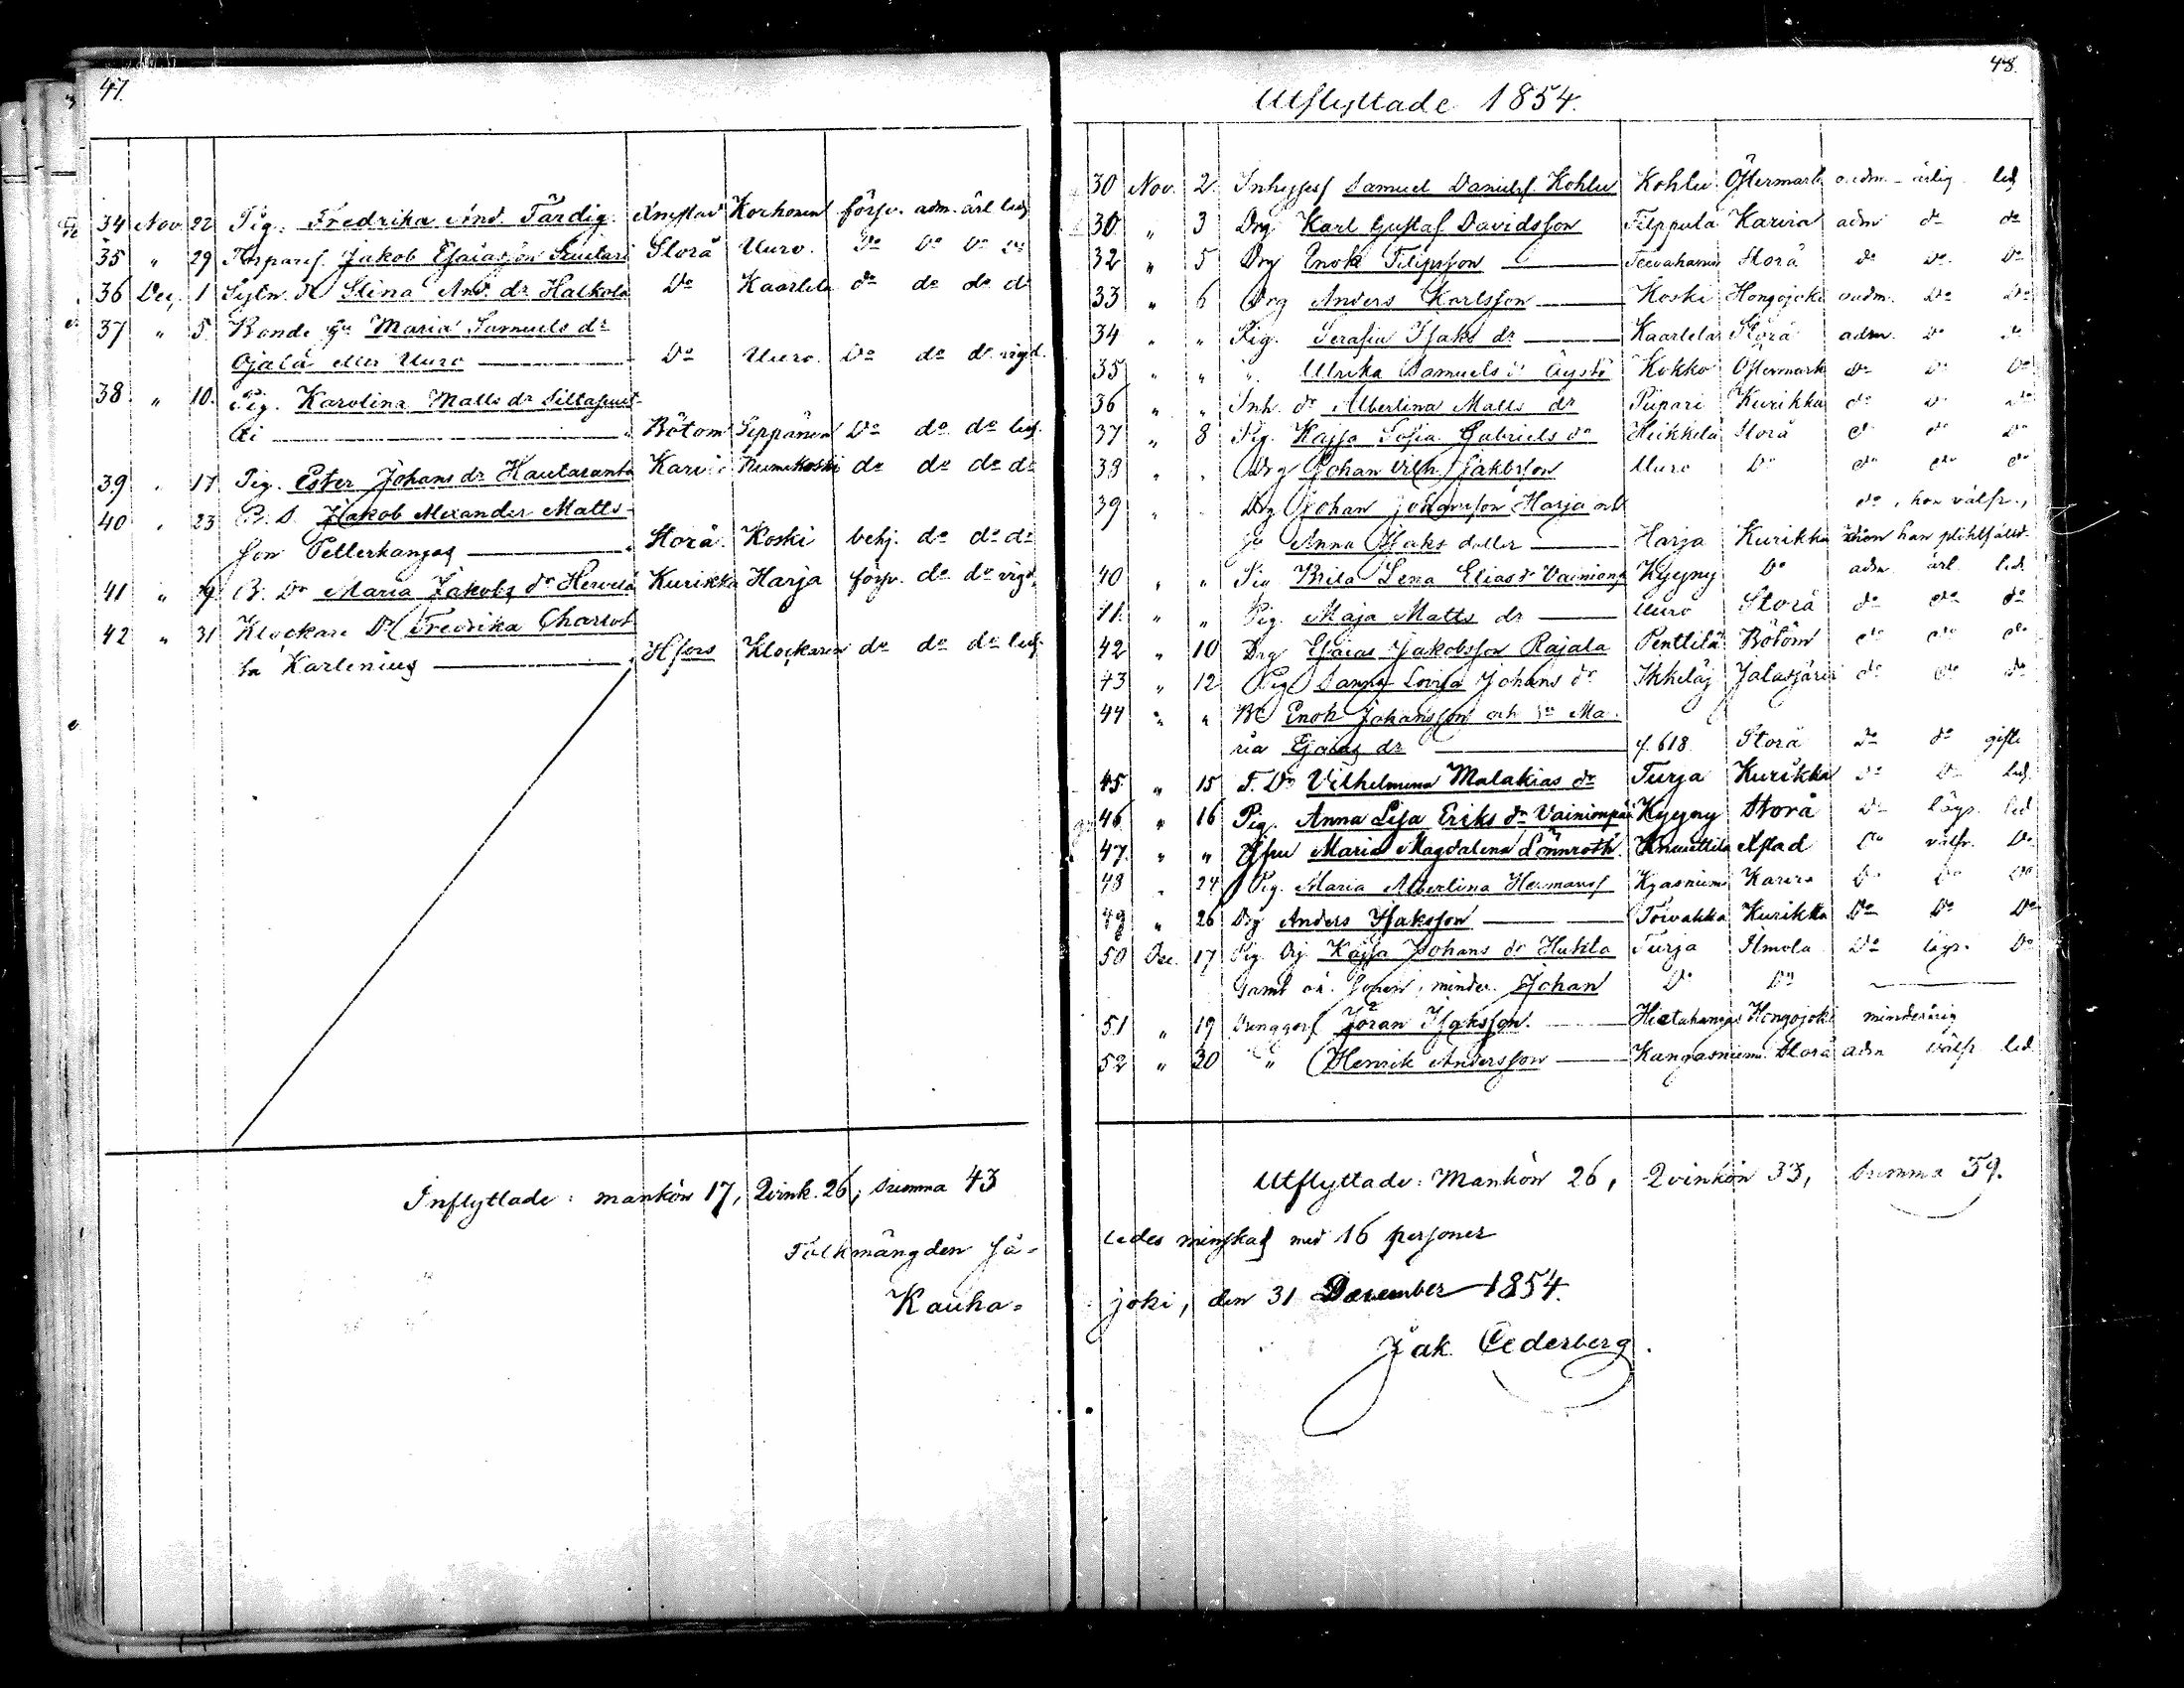 47.
34 Nov. 22 Pig. Fredrika And. Färdig Korhonen förfv. adm. ärl led.
35 " 29 Jakob Esaiasson Storå Uuro. Do Do Do Do
36 Dec. 1 Stina And. dr Halkola Do Kaarlela do do do do
37 " 5. Bonde Maria Samuels dr
Ojala eller Uuro Do Uuro. Do do do vigd.
38 " 10. Pig. Karolina Matts dr
ki Bötom Seppänen Do do do led.
39 " 17 Pig. Ester Johans dr Hautaranta do do do do
40 " 23 B. S. Jakob Alexander Matts-
son Pellerkangas Storå Koski behj. do do do
41 " B. Dr Maria Jakobs dr Kurikka Harja förfv. do do vigd.
42 " 31 Klockare Dr Fredrika Charlot-
ta Karlenius Hfors Klockaren do do do led.
Inflyttade: mankön 17, Qvink. 26, summa 43
Folkmängden så-
Kauha-
48.
Utflyttade 1854.
30 Nov. 2. Samuel Daniels. Kohlu Kohlu Östermark oadm. ärlig led
30 " 3 Drg Karl Gustaf Davidsson Filppula Karvia adm do do
32 " 5 Drg Enok Filipsson Storå do Do Do
33 " 6 Drg Anders Karlsson Koski Hongojoki oadm. Do Do
34 " " Pig. Serafia Isaks dr Kaarlela Storå adm. Do Do
35 " " ". Ulrika Samuels dr Äystö Kokko Östermark Do Do Do
36 " " Inh. dr Albertina Matts dr Pispari Kurikka do Do Do
37 " 8 Pig. Kajsa Sofia Gabriels dr Heikkilä Storå do do Do
38 " " Drg Johan Vilh. Jakobsson Uuro Do do do do
39 " " Drg Johan Harja och do, hon välfr.,
Anna Isaks dotter Harja Kurikka
40 " " Pig Brita Lena Elias dr Vainionp Kyyny Do adm ärl led.
41. " " Pig. Maja Matts dr Uuro Storå do do do
42 " 10 Drg Esaias Jakobsson Rajala Penttilä Bötom do do do
43 " 12 Pig Sanna Lovisa Johans dr Jalasjärvi do do do
44 " " Enok Johansson och Ma-
ria Esaias dr f. 618. Storå do do gifte
45 " 15 F. Dr Vilhelmina Malakias dr Turja Kurikka Do Do led.
46. " 16 Pig. Anna Lisa Eriks dr Vainionpää Kyyny Storå Do lägr. led
47. " " Maria Magdalena Lönnroth. Knuuttila Do välfr. Do
48 " 24 Pig. Maria Albertina Hermansf Do Do Do
49 " 26 Drg Anders Isaksson Toivakka Kurikka Do Do Do
50 Dec. 17 Pig. Kajsa Johans dr Huhta Turja Ilmola Do lägr. Do
samt minder. Johan Do Do
51 " 19 Göran Isaksson. Hietakangas Hongojoki minderårig
52 " 30 " Henrik Andersson Kangasniemi Storå adm välfr. led.
Utflyttade: Mankön 26, Qvinkön 33, summa 59.
ledes minskad med 16 personer
joki, den 31 December 1854.
Jak. Cederberg.